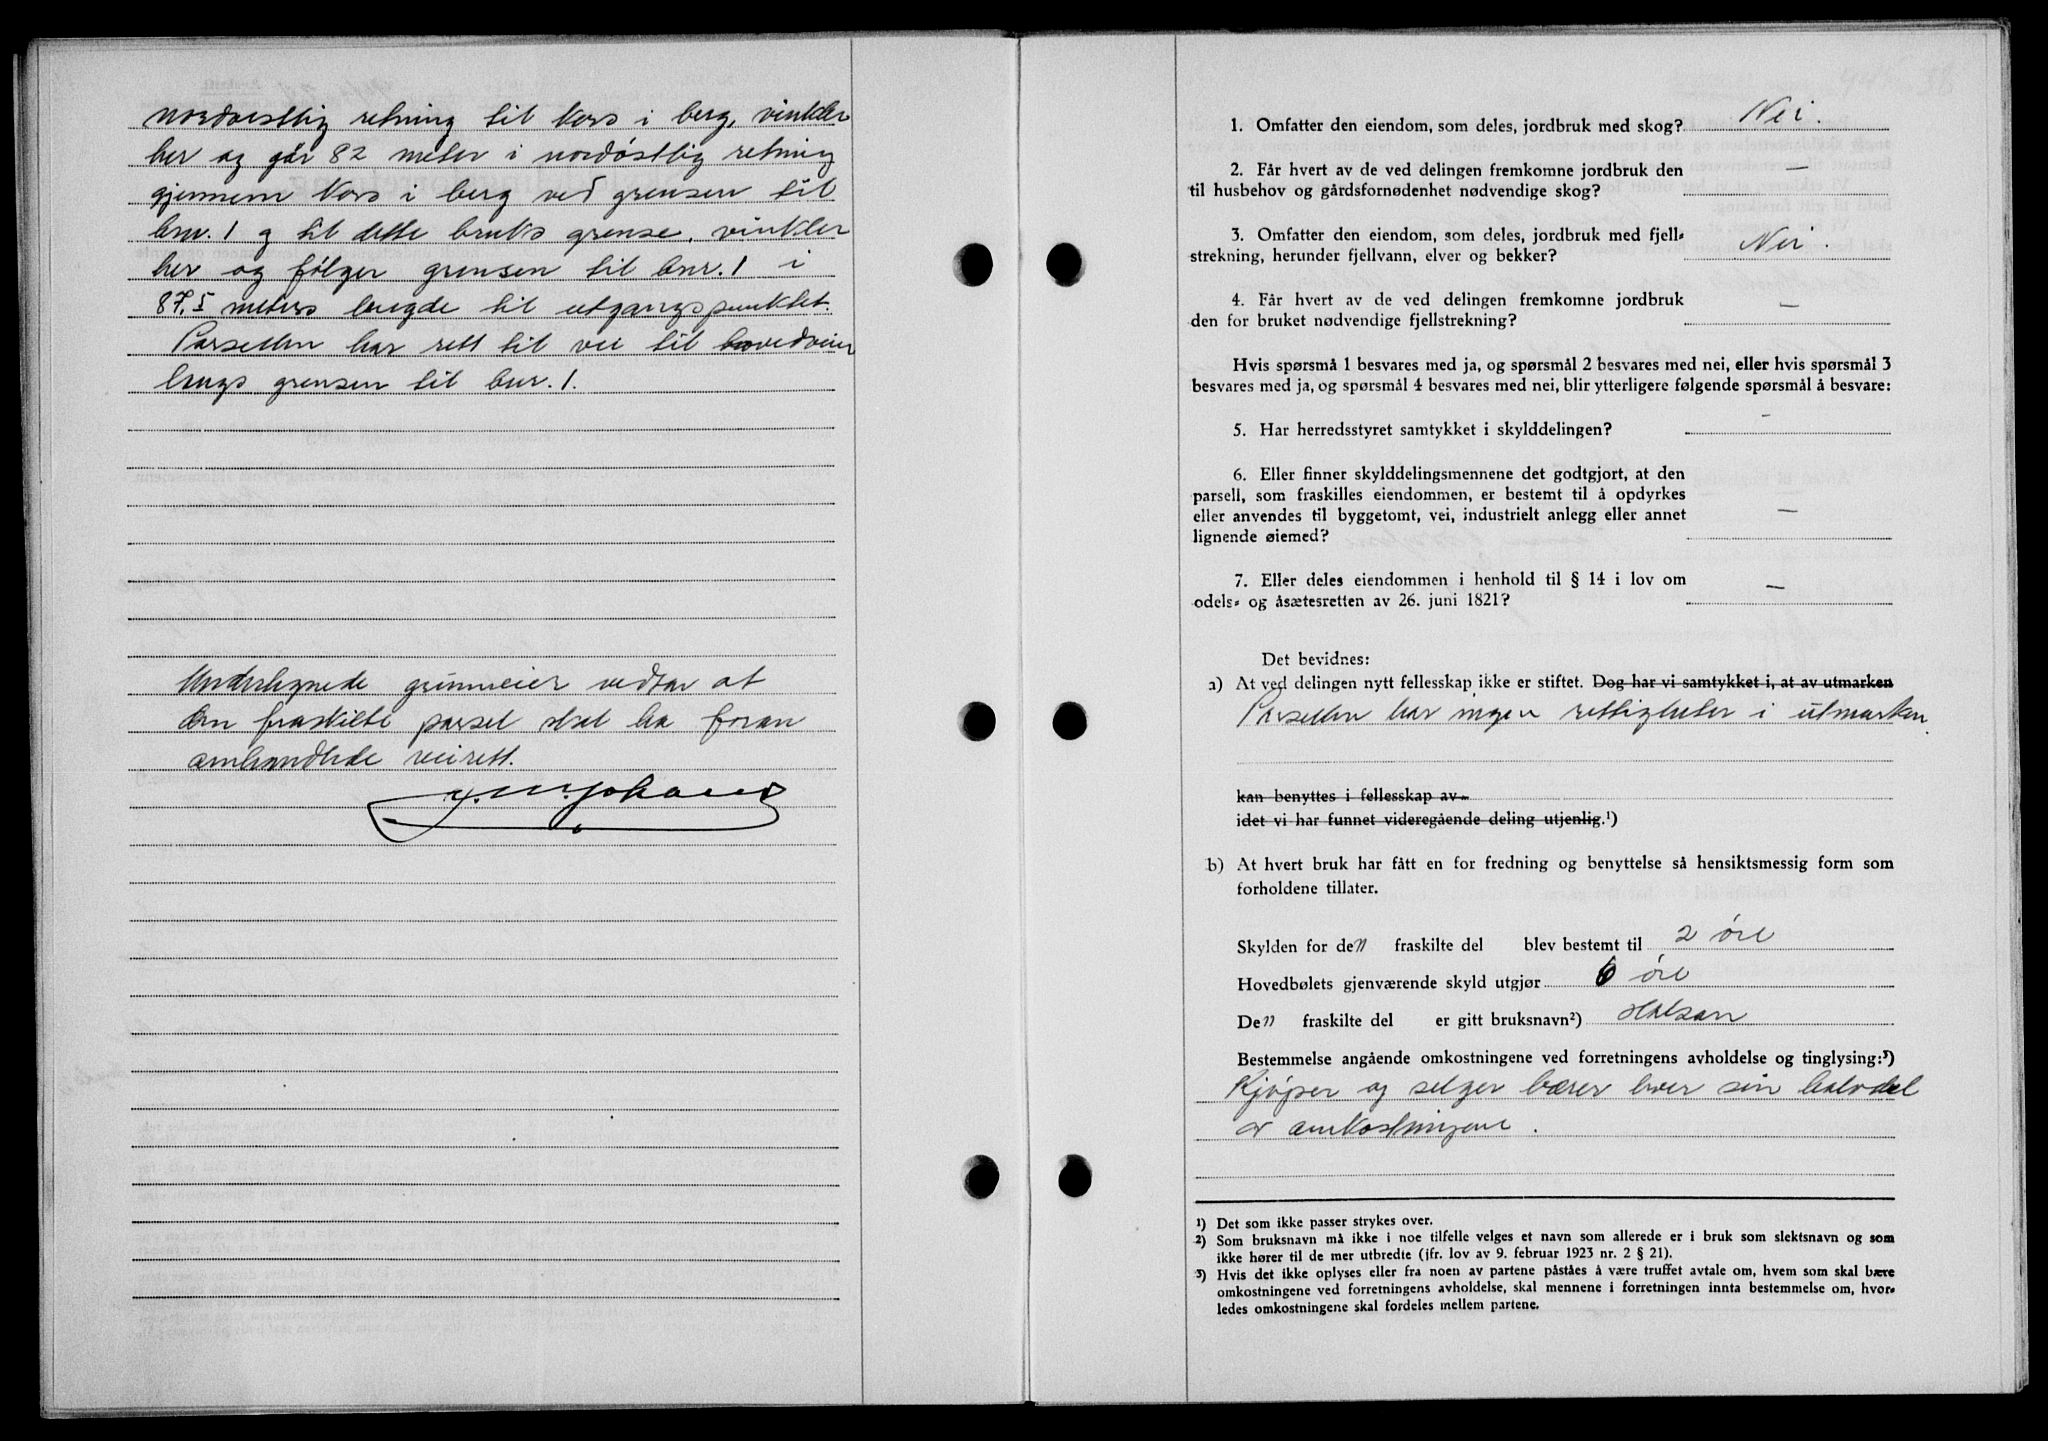 nordvestlig retning til kors i berg, vinkler
her og går 82 meter i nordøstlig retning
gjennem kors i berg ved grensen til
bnr. 1 g til dette bruks grense, vinkler
her og følger grensen til bnr. 1 i
87,5 meters lengde til utgangspunktet.
Parsellen har rett til vei til hovedveien
langs grensen til bnr. 1.
Undertegnede grunneier vedtar at
den fraskilte parsel skal ha foran
omhandlede veirett.
1. Omfatter den eiendom, som deles, jordbruk med skog? Nei.
2. Får hvert av de ved delingen fremkomne jordbruk den
til husbehov og gårdsfornødenhet nødvendige skog? —
3. Omfatter den eiendom, som deles, jordbruk med fjell-
strekning, herunder fjellvann, elver og bekker? Nei.
4. Får hvert av de ved delingen fremkomne jordbruk
den for bruket nødvendige fjellstrekning? —
Hvis spørsmå 1 besvares med ja, og spørsmål 2 besvares med nei, eller hvis spørsmål 3
besvares med ja, og spørsmål 4 besvares med nei, blir ytterligere følgende spørsmål å besvare:
5. Har herredsstyret samtykket i skylddelingen? —
6. Eller finner skylddelingsmennene det godtgjort, at den
parsell, som fraskilles eiendommen, er bestemt til å opdyrkes
eller anvendes til byggetomt, vei, industrielt anlegg eller annet
lignende øiemed? —
7. Eller deles eiendommen i henhold til § 14 i lov om
odels- og åsætesretten av 26. juni 1821? —
Det bevidnes:
a) At ved delingen nytt fellesskap ikke er stiftet. Dog har vi samtykket i, at av utmarken
Parsellen har ingen rettigheter i utmarken.
kan benyttes i fellesskap av
idet vi har funnet videregående deling utjenlig.¹)
b) At hvert bruk har fått en for fredning og benyttelse så hensiktsmessig form som
forholdene tillater.
Skylden for den fraskilte del blev bestemt til 2 øre
Hovedbølets gjenværende skyld utgjør 6 øre
Den fraskilte del er gitt bruksnavn²) Halsan
Bestemmelse angående omkostningene ved forretningens avholdelse og tinglysing:³)
Kjøper og selger bærer hver sin halvdel
av omkostningene.
1) Det som ikke passer strykes over.
2) Som bruksnavn må ikke i noe tilfelle velges et navn som allerede er i bruk som slektsnavn og som
ikke hører til de mer utbredte (jfr. lov av 9. februar 1923 nr. 2 § 21).
3) Hvis det ikke oplyses eller fra noen av partene påståes å være truffet avtale om, hvem som skal bære
omkostningene ved forretningens avholdelse, skal mennene i forretningen innta bestemmelse om, hvor-
ledes omkostningene skal fordeles mellem partene.